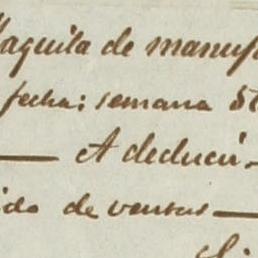 Maquila de manuf
fecha: semana 5
A deducir
ido de ventas